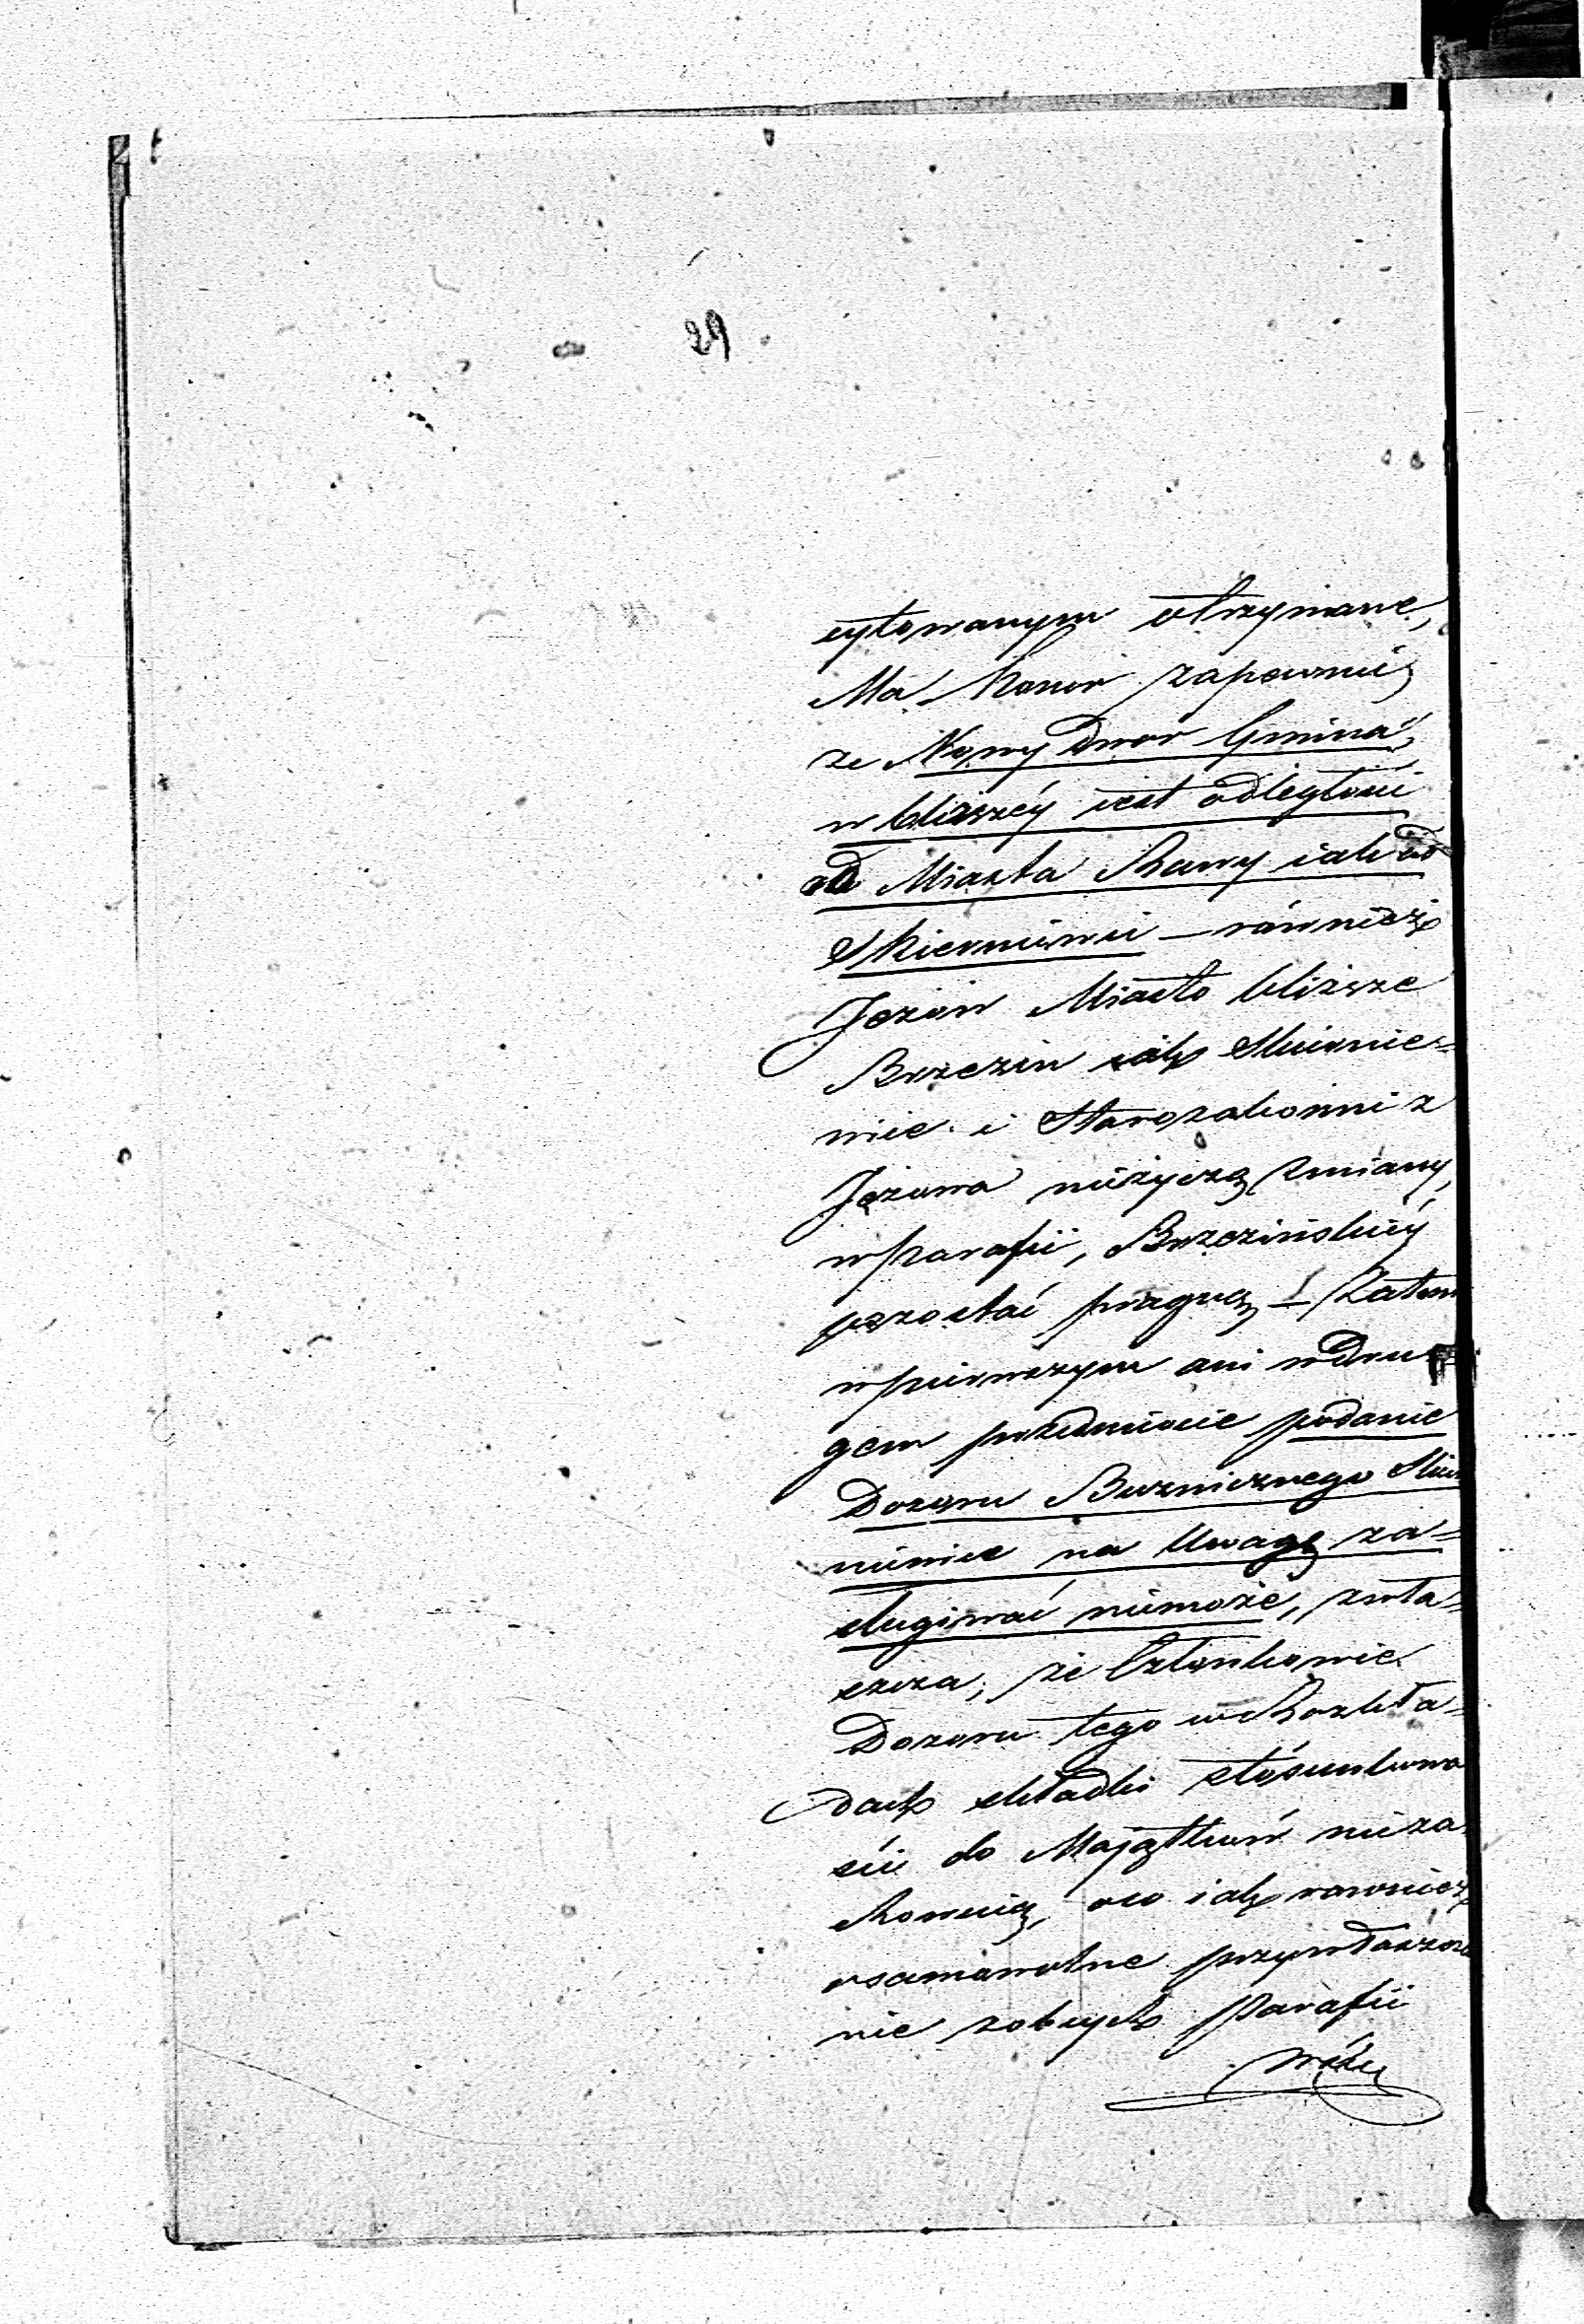 29
cytowanym otrzymane,
Ma honor zapewnić
ze Nowy Dwor Gmina,
w bliższéy iest odległości
od Miasta Rawy iak od
Skierniewic — również
Jeżów Miasto bliższe
Brzezin iak Skiernie=
wic i Starozakonni z
Jeżowa nieżyczą zmiany,
w Parafii, Brzezińskiéy
pozostać pragną — Zatem
w pierwszym ani w dru=
gem przedmiocie podanie
Dozoru Bużnicznego Skier
niewic na Uwagę za=
sługiwać niemoże, zwła=
szcza, że Członkowie
Dozoru tego w Rozkła=
dach składki stósunkowo
ści do Majątków nieza
chowuią, oco iak rownież
o samowolne przywłaszcze
nie sobie Parafii